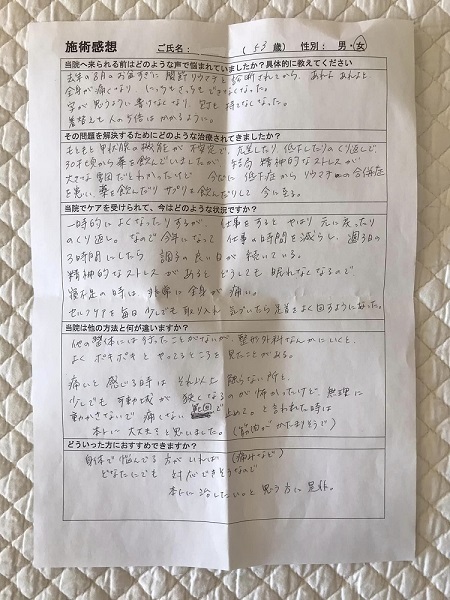 施術感想 ご氏名： （ 53 歳） 性別： 男・女
当院へ来られる前はどのような声で悩まれていましたか？具体的に教えてください
去年の8月のお盆すぎに 関節リウマチと診断されてから、あれよあれよと
全身が痛くなり、にっちもさっちもできなくなった。
字が思うように書けなくなり、包丁も持てなくなった。
着替えも人の5倍はかかるように。
その問題を解決するためにどのような治療されてきましたか？
もともと甲状腺の機能が不安定で、亢進したり低下したりのくり返しで、
30才頃から薬を飲んでいましたが、結局精神的なストレスが
大きな要因だとわかったけど、今だに低下症からリウマチの合併症
を患い、薬を飲んだり サプリを飲んだりして 今に至る。
当院でケアを受けられて、今はどのような状況ですか？
一時的によくなったりするが、仕事をすると やはり元に戻ったり
のくり返し。なので今年になって 仕事の時間を減らし、週3日の
3時間にしたら 調子の良い日が続いている。
精神的なストレスがあると どうしても 眠れなくなるので
寝不足の時は 非常に全身が痛い。
セルフケアを毎日少しでも取り入れ 気づいたら足首をよく回すようになった。
当院は他の方法と何が違いますか？
他の整体には行ったことがないが、整形外科なんかにいくと、
よくポキポキと やってるところを見たことがある。
痛いと感じる時は それ以上 触らない所と、
少しでも 可動域が 狭くなるのが怖かったけど、無理に
動かさないで 痛くない 範囲で止めて。と言われた時は
本当に 大丈夫？と思いました。（筋肉がかたまりそうで）
どういった方におすすめできますか？
身体で悩んでる方がいれば （痛みなど）
どなたにでも 対応できそうなので
本当に治したい。と思う方に是非。